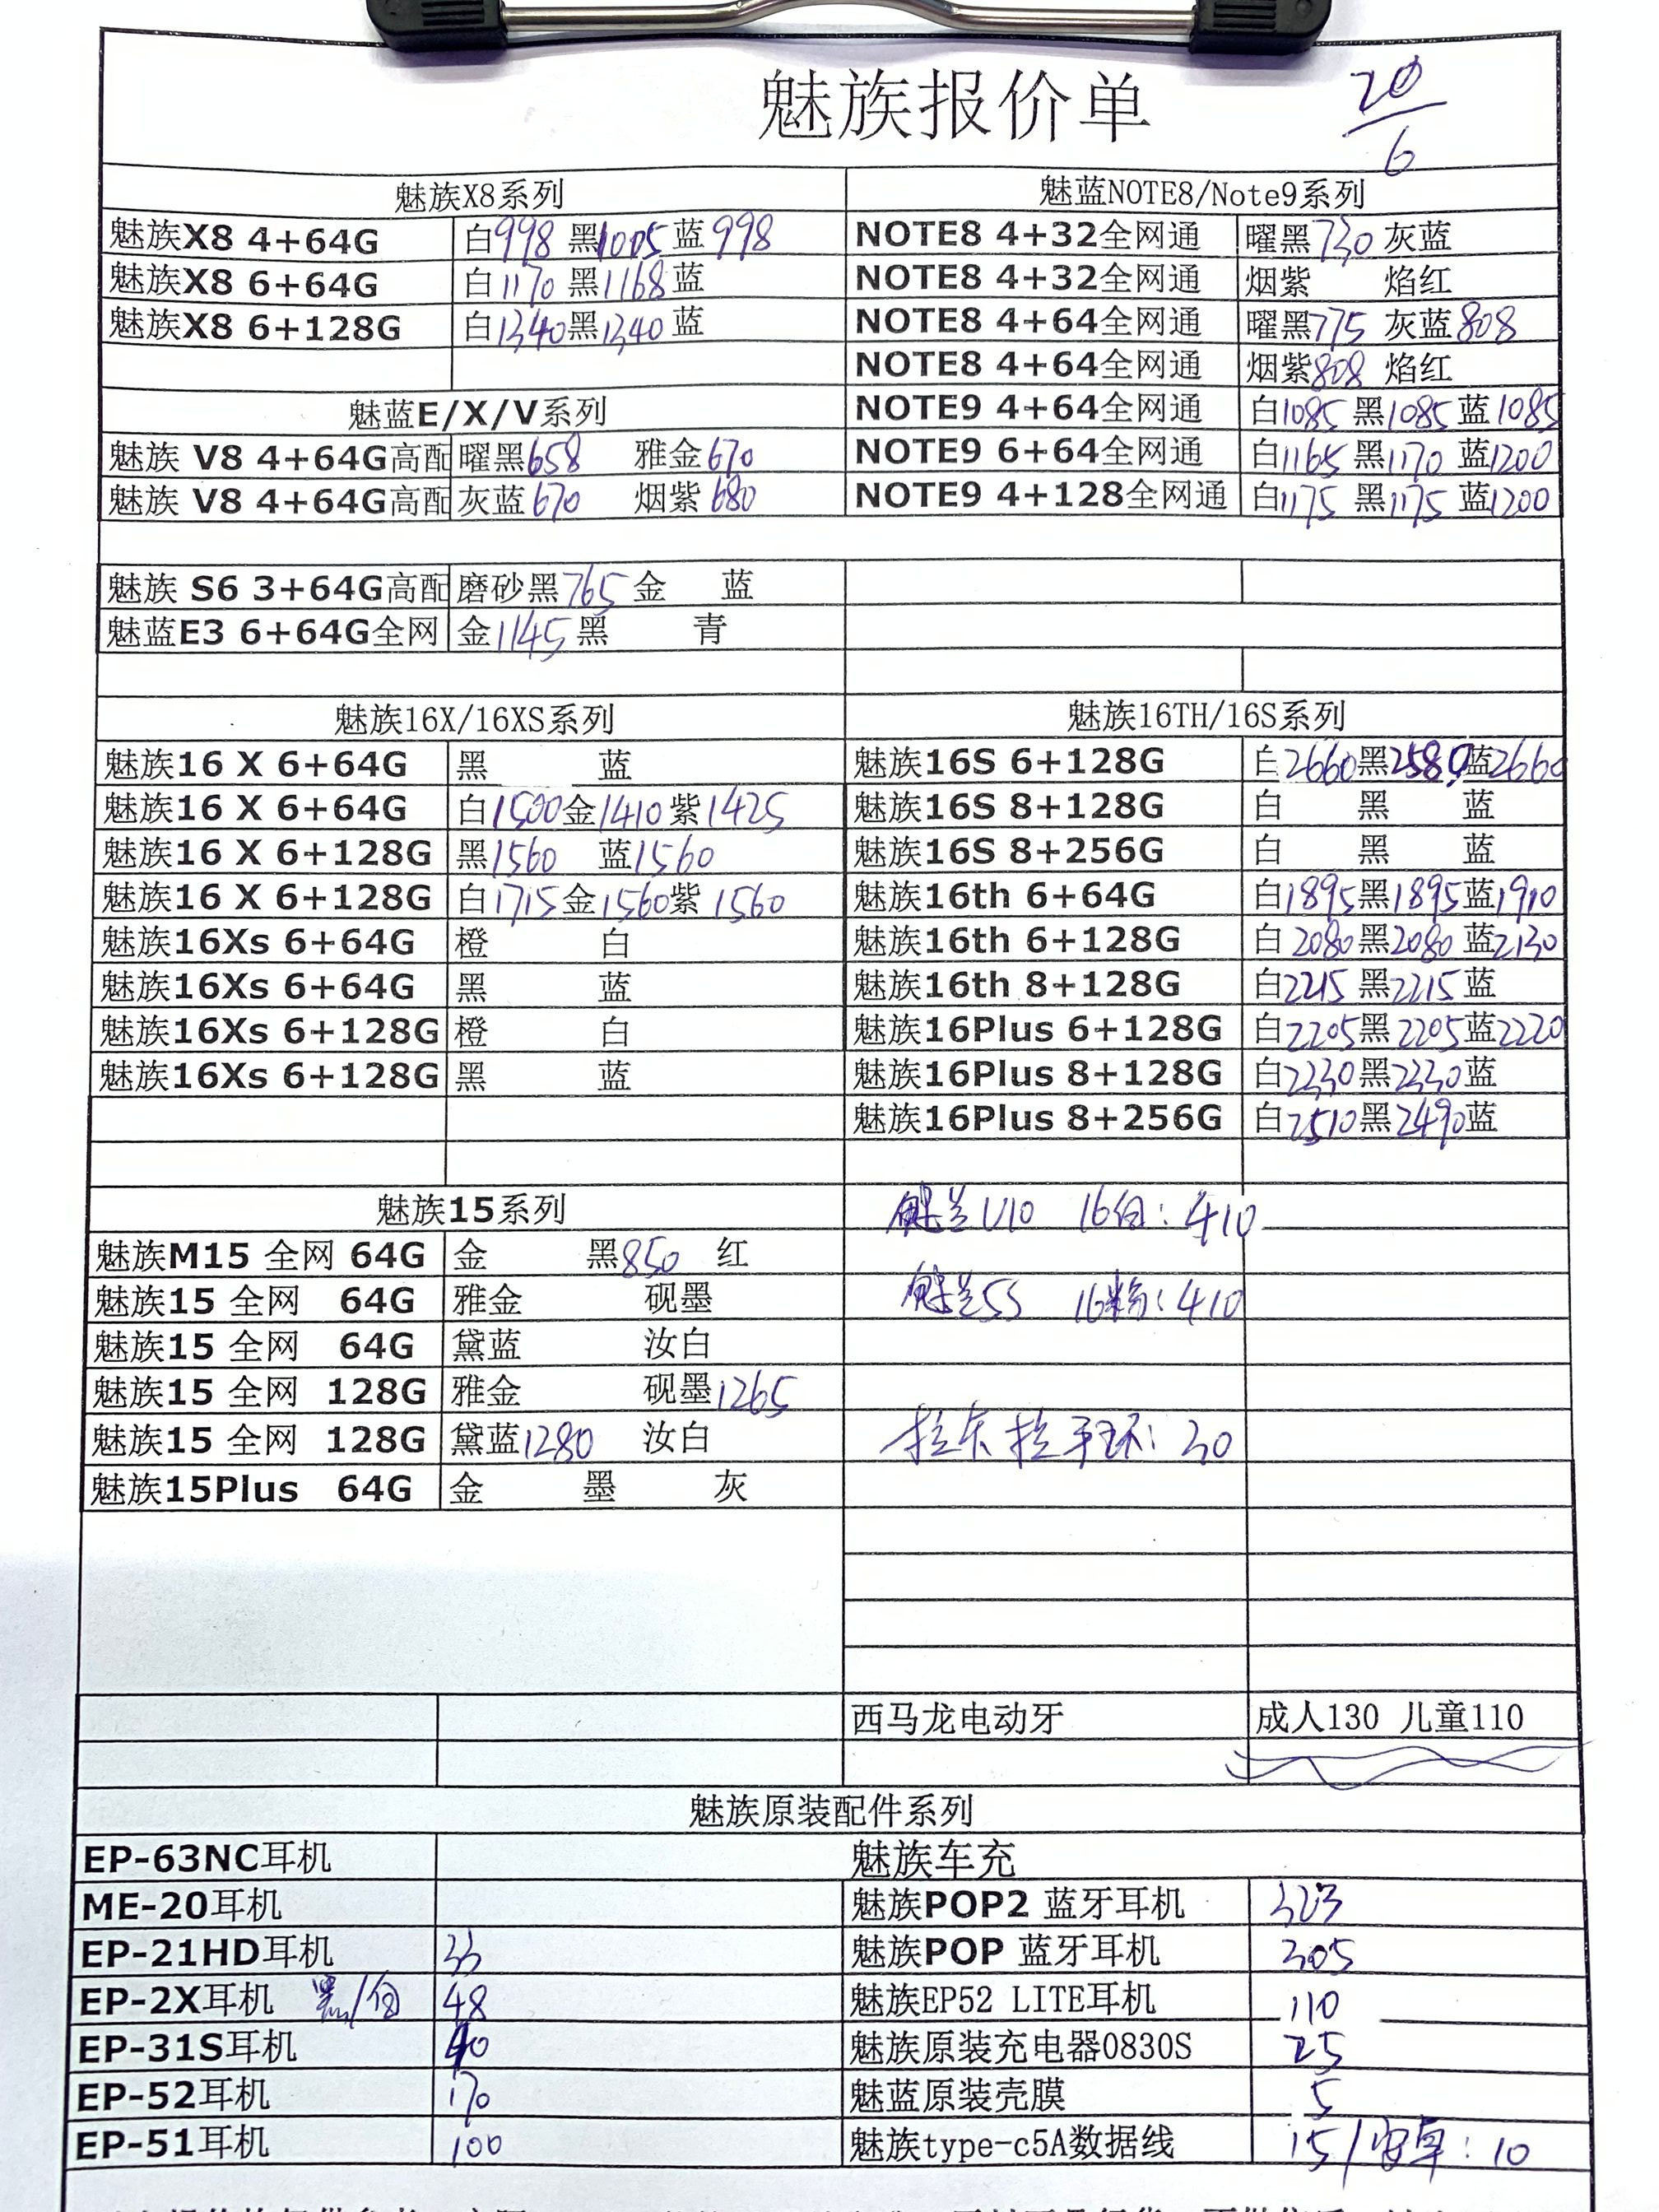 魅族报价单 20/6
魅族X8系列 魅蓝NOTE8/Note9系列
魅族X8 4+64G 白998 黑1005 蓝998 NOTE8 4+32全网通 曜黑730 灰蓝
魅族X8 6+64G 白1170 黑1168 蓝 NOTE8 4+32全网通 烟紫 焰红
魅族X8 6+128G 白1340 黑1340 蓝 NOTE8 4+64全网通 曜黑775 灰蓝808
NOTE8 4+64全网通 烟紫808 焰红
魅蓝E/X/V系列 NOTE9 4+64全网通 白1085 黑1085 蓝1085
魅族 V8 4+64G高配 曜黑658 雅金670 NOTE9 6+64全网通 白1165 黑1170 蓝1200
魅族 V8 4+64G高配 灰蓝670 烟紫680 NOTE9 4+128全网通 白1175 黑1175 蓝1200
魅族 S6 3+64G高配 磨砂黑765 金 蓝
魅蓝E3 6+64G全网 金1145 黑 青
魅族16X/16XS系列 魅族16TH/16S系列
魅族16 X 6+64G 黑 蓝 魅族16S 6+128G 白2660 黑2580 蓝2660
魅族16 X 6+64G 白1500 金1410 紫1425 魅族16S 8+128G 白 黑 蓝
魅族16 X 6+128G 黑1560 蓝1560 魅族16S 8+256G 白 黑 蓝
魅族16 X 6+128G 白1715 金1560 紫1560 魅族16th 6+64G 白1895 黑1895 蓝1910
魅族16Xs 6+64G 橙 白 魅族16th 6+128G 白2080 黑2080 蓝2130
魅族16Xs 6+64G 黑 蓝 魅族16th 8+128G 白2215 黑2215 蓝
魅族16Xs 6+128G 橙 白 魅族16Plus 6+128G 白2205 黑2205 蓝2220
魅族16Xs 6+128G 黑 蓝 魅族16Plus 8+128G 白2330 黑2330 蓝
魅族16Plus 8+256G 白2510 黑2490 蓝
魅族15系列 魅兰U10 16白：410
魅族M15 全网 64G 金 黑850 红
魅族15 全网 64G 雅金 砚墨 魅兰5S 16粉：410
魅族15 全网 64G 黛蓝 汝白
魅族15 全网 128G 雅金 砚墨1265
魅族15 全网 128G 黛蓝1280 汝白 拉卡拉手环：30
魅族15Plus 64G 金 墨 灰
西马龙电动牙 成人130 儿童110
魅族原装配件系列
EP-63NC耳机 魅族车充
ME-20耳机 魅族POP2 蓝牙耳机 323
EP-21HD耳机 33 魅族POP 蓝牙耳机 305
EP-2X耳机 黑/白 48 魅族EP52 LITE耳机 110
EP-31S耳机 40 魅族原装充电器0830S 25
EP-52耳机 170 魅蓝原装壳膜 5
EP-51耳机 100 魅族type-c5A数据线 15/安卓：10